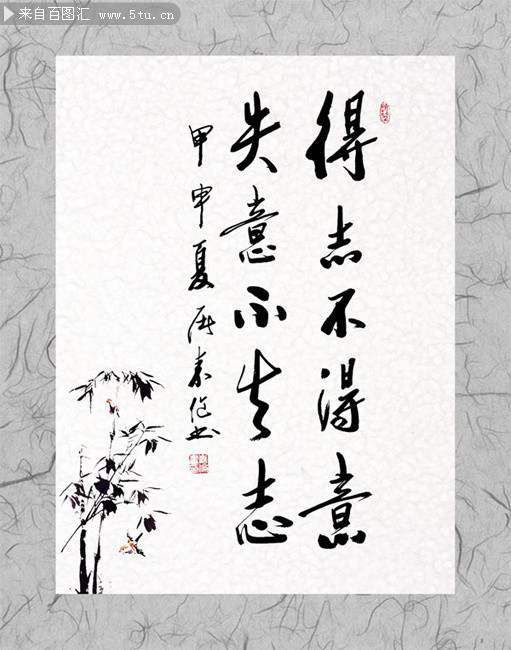 来自百图汇 www.5tu.cn
得志不得意
失意不失志
甲申夏